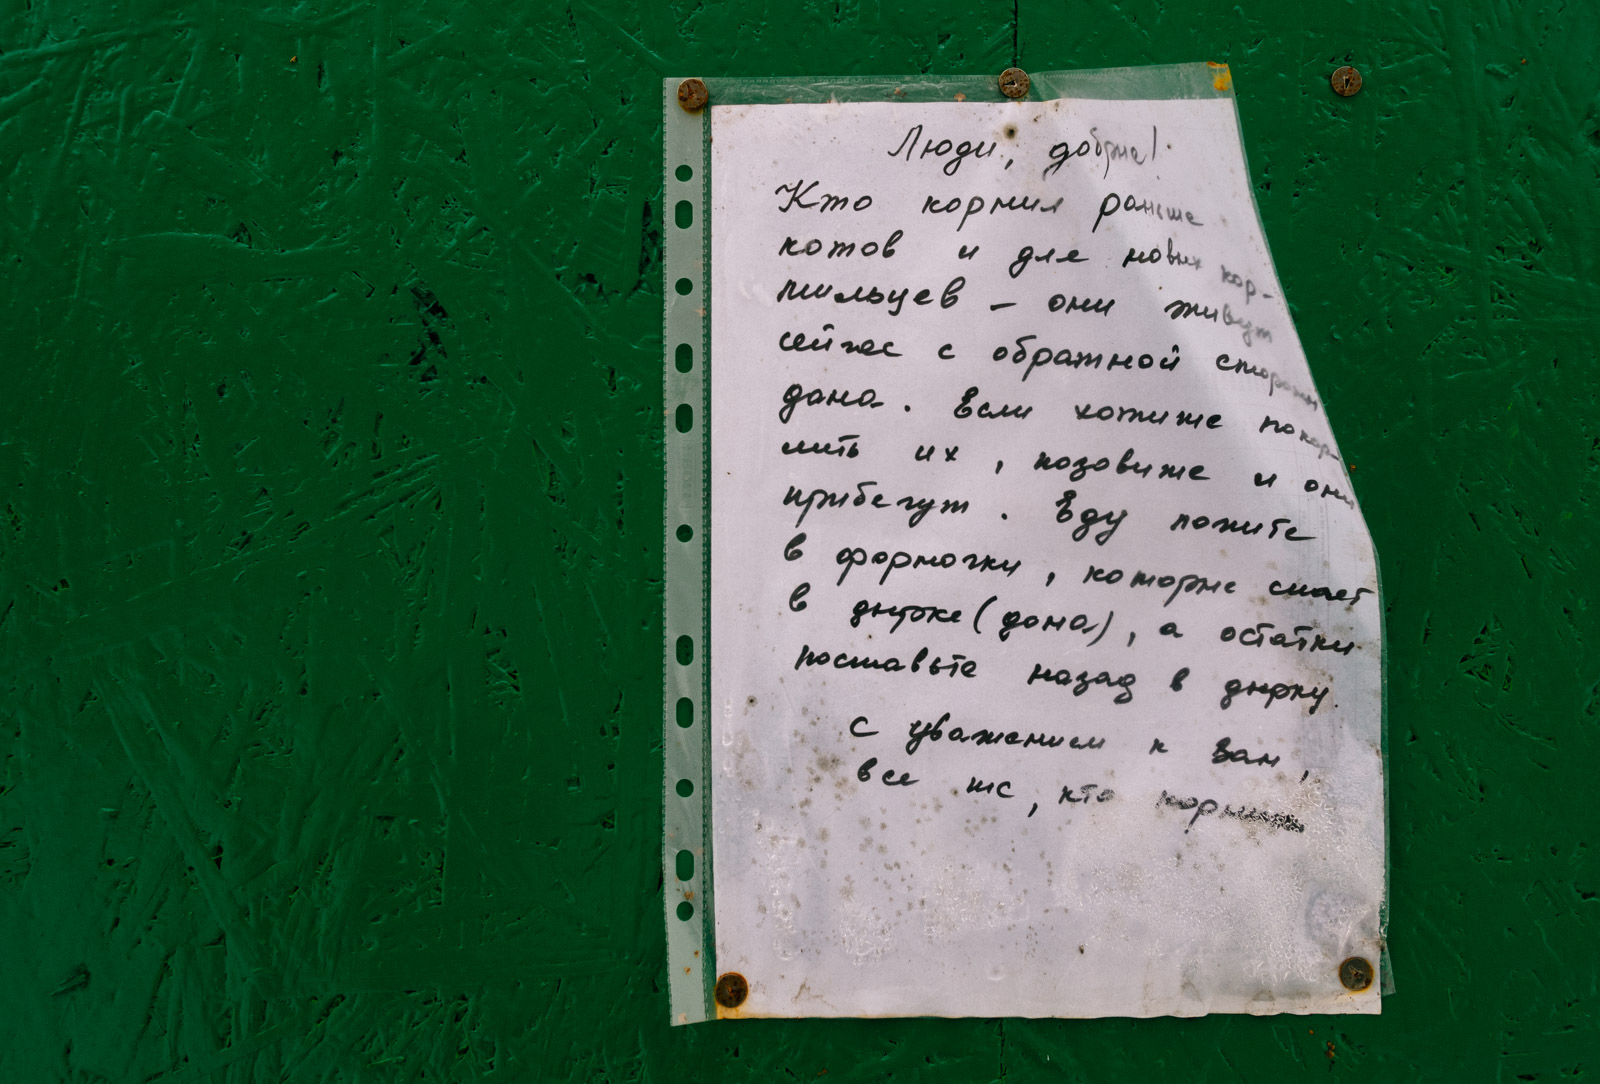 Люди, добрые!
Кто кормил раньше
котов и для новых кор-
мильцев - они живут
сейчас с обратной стороны
дома. Если хотите покор-
мить их, позовите и они
прибегут. Еду ложите
в формочки, которые
в дырке (дома), а остатки
поставьте назад в дырку.
С уважением к Вам,
все те, кто